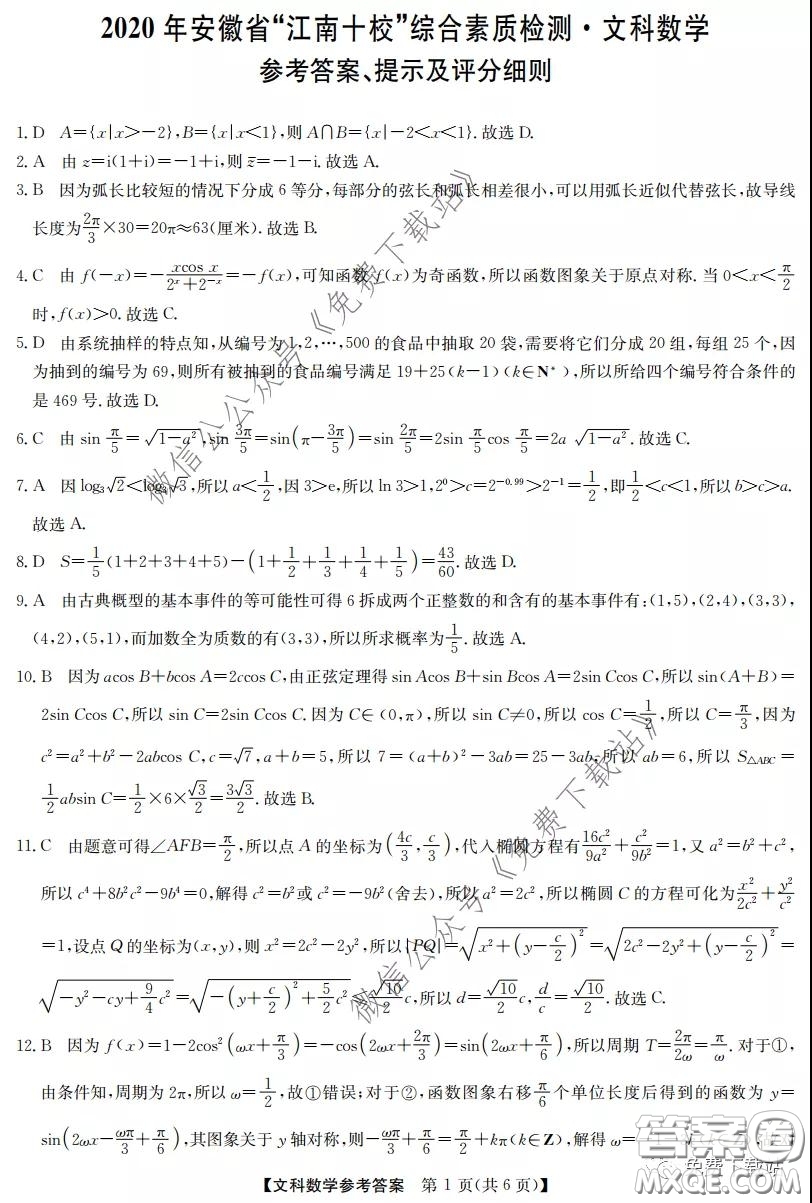 2020 年安徽省“江南十校”综合素质检测·文科数学
参考答案、提示及评分细则
1. D A={x|x>-2},B={x|x<1},则 A∩B={x|-2<x<1}. 故选 D.
2. A 由 z=i(1+i)=-1+i,则 z̄=-1-i. 故选 A.
3. B 因为弧长比较短的情况下分成 6 等分,每部分的弦长和弧长相差很小,可以用弧长近似代替弦长,故导线
长度为 2π/3×30=20π≈63(厘米). 故选 B.
4. C 由 f(-x)=-xcos x/(2^x+2^(-x))=-f(x),可知函数 f(x)为奇函数,所以函数图象关于原点对称. 当 0<x<π/2
时,f(x)>0. 故选 C.
5. D 由系统抽样的特点知,从编号为 1,2,…,500 的食品中抽取 20 袋,需要将它们分成 20 组,每组 25 个,因
为抽到的编号为 69,则所有被抽到的食品编号满足 19+25(k-1)(k∈N*),所以所给四个编号符合条件的
是 469 号. 故选 D.
6. C 由 sin π/5=√(1-a²),sin 3π/5=sin(π-3π/5)=sin 2π/5=2sin π/5 cos π/5=2a √(1-a²). 故选 C.
7. A 因 log₃√2<log₃√3,所以 a<1/2,因 3>e,所以 ln 3>1,2⁰>c=2^(-0.99)>2^(-1)=1/2,即 1/2<c<1,所以 b>c>a.
故选 A.
8. D S=1/5(1+2+3+4+5)-(1+1/2+1/3+1/4+1/5)=43/60. 故选 D.
9. A 由古典概型的基本事件的等可能性可得 6 拆成两个正整数的和含有的基本事件有:(1,5),(2,4),(3,3),
(4,2),(5,1),而加数全为质数的有(3,3),所以所求概率为 1/5. 故选 A.
10. B 因为 acos B+bcos A=2ccos C,由正弦定理得 sin Acos B+sin Bcos A=2sin Ccos C,所以 sin(A+B)=
2sin Ccos C,所以 sin C=2sin Ccos C. 因为 C∈(0,π),所以 sin C≠0,所以 cos C=1/2,所以 C=π/3,因为
c²=a²+b²-2abcos C,c=√7,a+b=5,所以 7=(a+b)²-3ab=25-3ab,所以 ab=6,所以 S△ABC=
1/2 absin C=1/2×6×√3/2=3√3/2. 故选 B.
11. C 由题意可得∠AFB=π/2,所以点 A 的坐标为(4c/3,c/3),代入椭圆方程有 16c²/9a²+c²/9b²=1,又 a²=b²+c²,
所以 c⁴+8b²c²-9b⁴=0,解得 c²=b²或 c²=-9b²(舍去),所以 a²=2c²,所以椭圆 C 的方程可化为 x²/2c²+y²/c²
=1,设点 Q 的坐标为(x,y),则 x²=2c²-2y²,所以|PQ|=√(x²+(y-c/2)²)=√(2c²-2y²+(y-c/2)²)=
√(-y²-cy+9/4 c²)=√(-(y+c/2)²+5/2 c²),所以 d=√10/2 c,d/c=√10/2. 故选 C.
12. B 因为 f(x)=1-2cos²(ωx+π/3)=-cos(2ωx+2π/3)=sin(2ωx+π/6),所以周期 T=2π/2ω=π/ω. 对于①,
由条件知,周期为 2π,所以 ω=1/2,故①错误;对于②,函数图象右移 π/6 个单位长度后得到的函数为 y=
sin(2ωx-ωπ/3+π/6),其图象关于 y 轴对称,则-ωπ/3+π/6=π/2+kπ(k∈Z),解得 ω=
【文科数学参考答案 第 1 页(共 6 页)】
微信公众号《免费下载站》
微信公众号《免费下载站》
免费下载站
答案圈
MXQE.COM